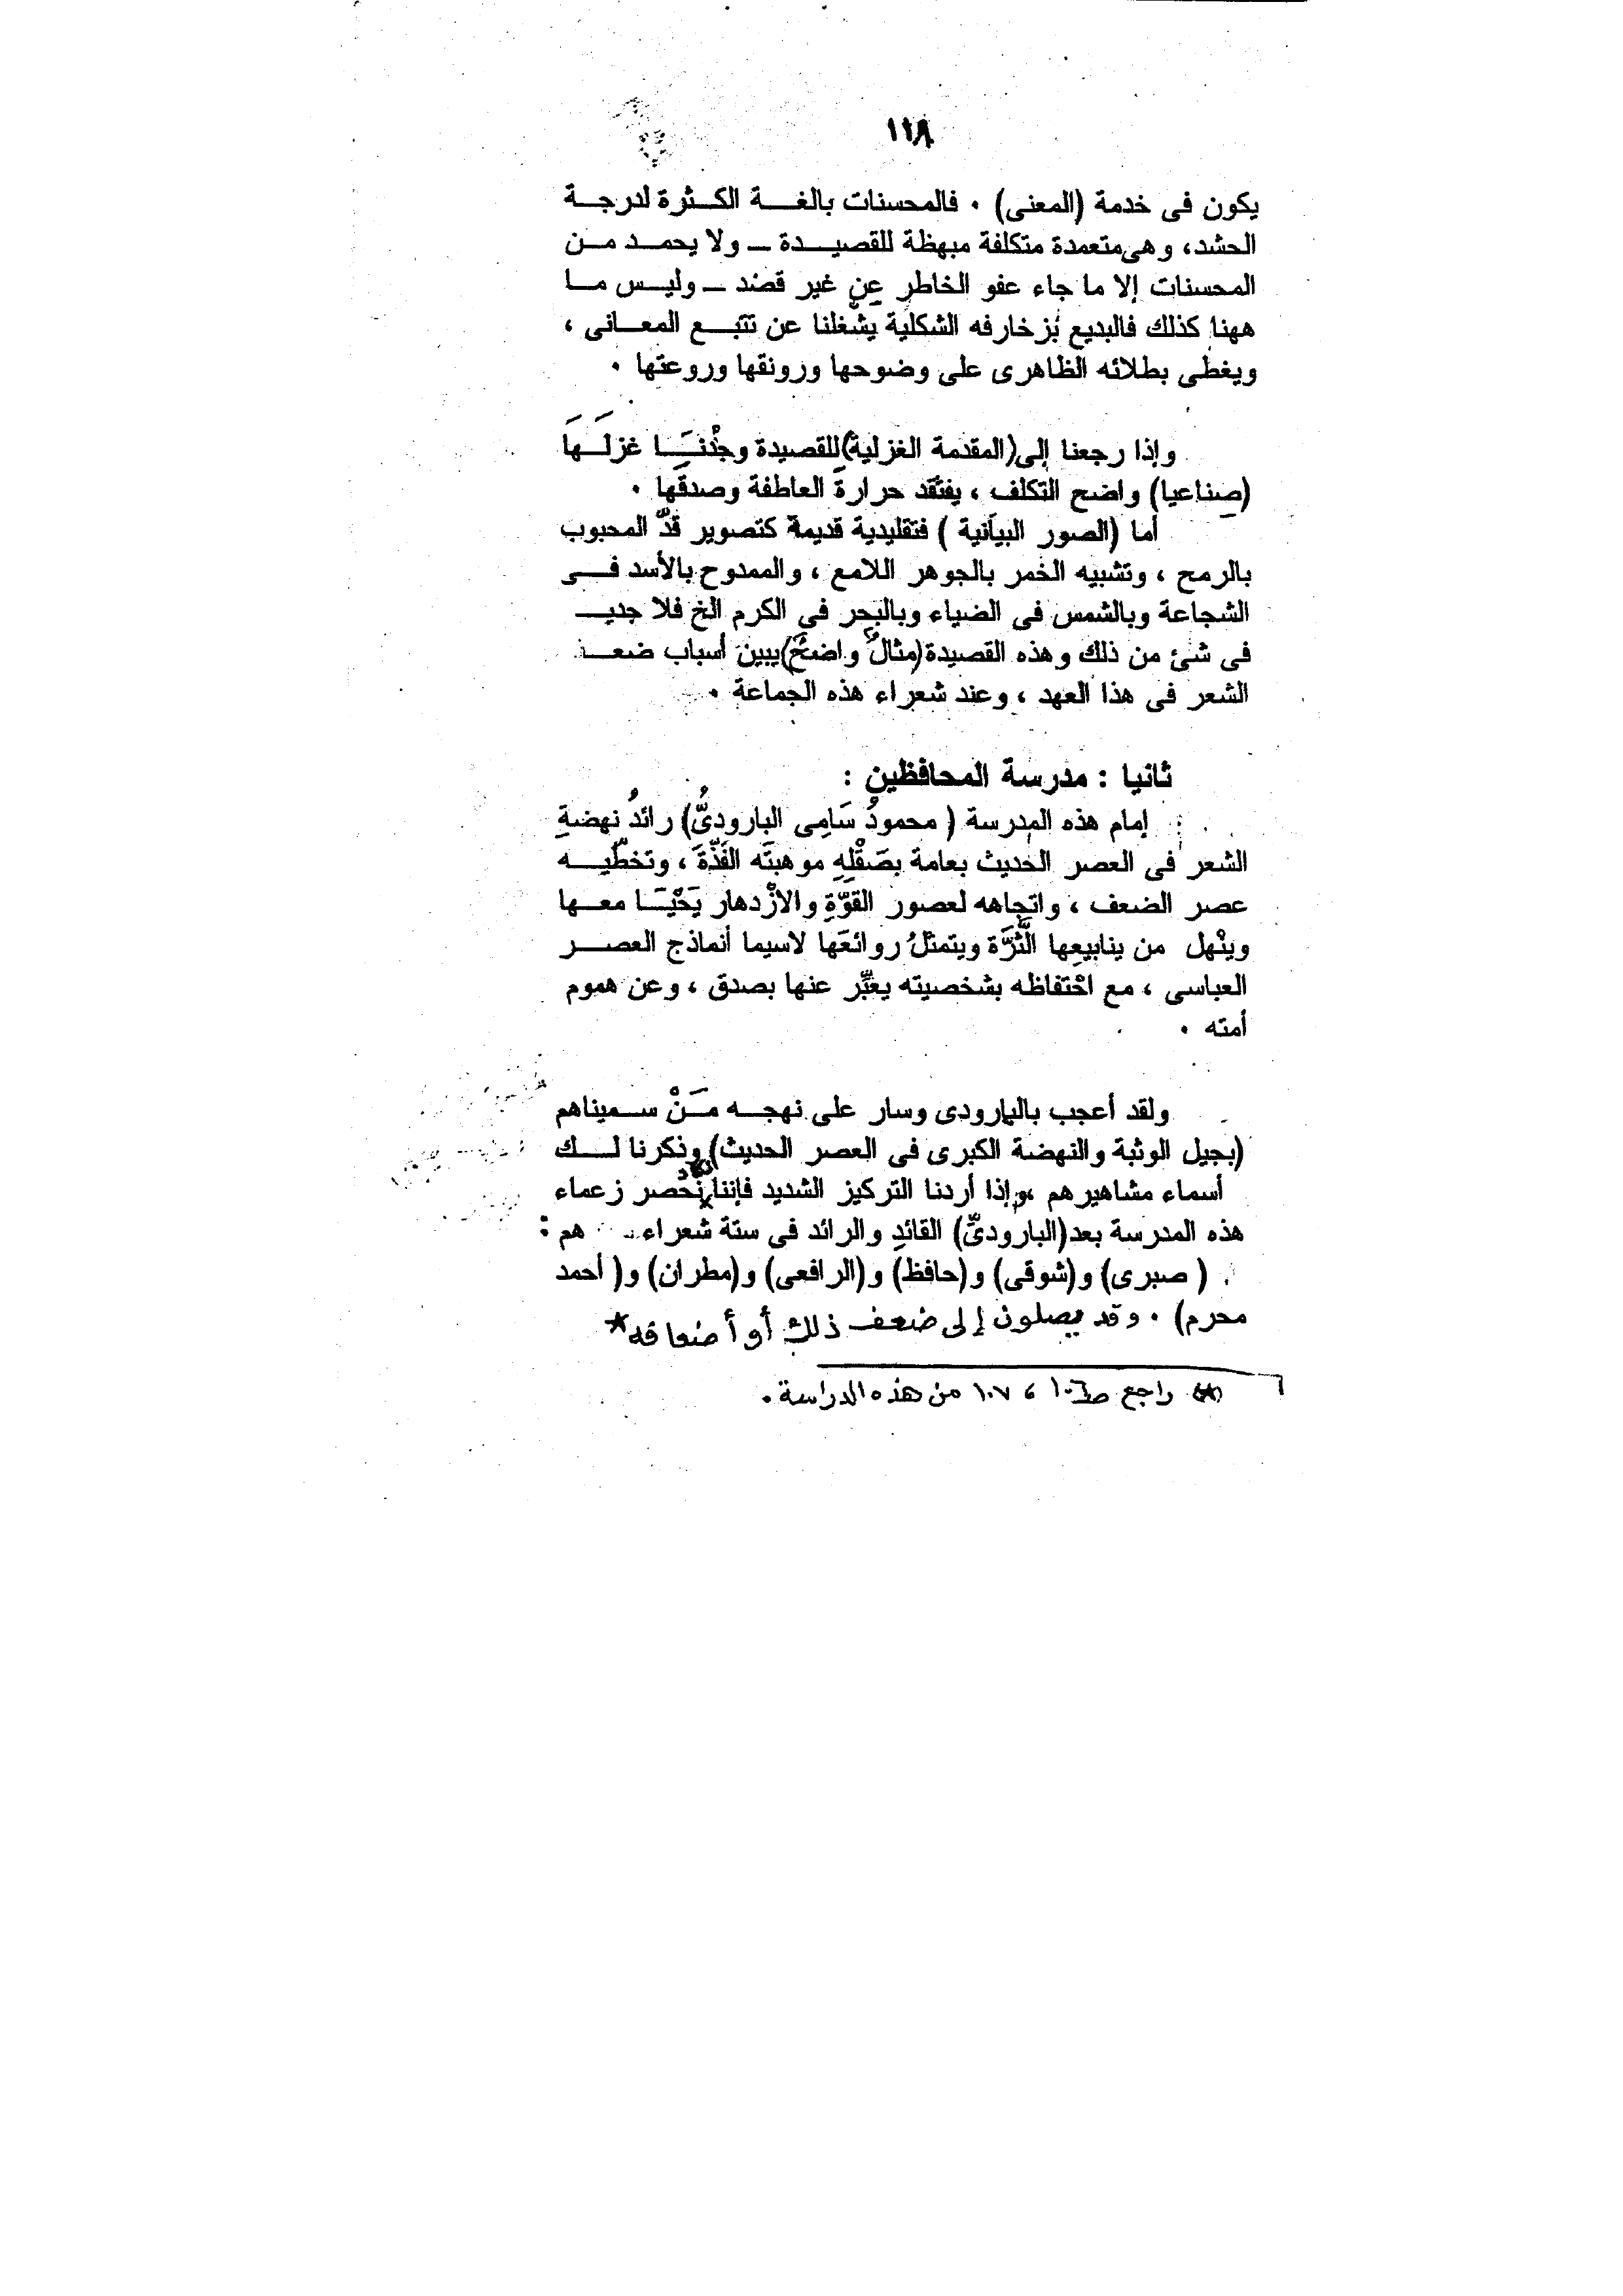 ١١٨
يكون فى خدمة (المعنى) ٠ فالمحسنات بالغة الكثرة لدرجة
الحشد، وهى متعمدة متكلفة مبهظة للقصيدة ــ ولا يحمد من
المحسنات إلا ما جاء عفو الخاطر عن غير قصد ــ وليس ما
ههنا كذلك فالبديع بزخارفه الشكلية يشغلنا عن تتبع المعانى ،
ويغطى بطلائه الظاهرى على وضوحها ورونقها وروعتها ٠
وإذا رجعنا إلى (المقدمة الغزلية) للقصيدة وجَدْنَا غزلَهَا
(صِناعيا) واضح التكلف ، يفتقد حرارةَ العاطفة وصدقَها ٠
أما (الصور البيانية ) فتقليدية قديمة كتصوير قدّ المحبوب
بالرمح ، وتشبيه الخمر بالجوهر اللامع ، والممدوح بالأسد فى
الشجاعة وبالشمس فى الضياء وبالبحر فى الكرم الخ فلا جديـ
فى شئ من ذلك وهذه القصيدة (مثالٌ واضحٌ) يبين أسباب ضعـ
الشعر فى هذا العهد ، وعند شعراء هذه الجماعة ٠
ثانيا : مدرسة المحافظين :
إمام هذه المدرسة ( محمودُ سَامِى البارودىُّ) رائدُ نهضةِ
الشعر فى العصر الحديث بعامة بصَقْلِهِ موهبتَه الفَذّةَ ، وتخطّيه
عصر الضعف ، واتجاهه لعصور القوّةِ والازْدهار يَحْيَا معها
وينْهل من ينابيعِها الثَّرَّة ويتمثلُ روائعَها لاسيما أنماذج العصر
العباسى ، مع احْتفاظه بشخصيته يعبِّر عنها بصدق ، وعن هموم
أمته ٠
ولقد أعجب بالبارودى وسار على نهجه مَنْ سميناهم
(بجيل الوثبة والنهضة الكبرى فى العصر الحديث) وذكرنا لك
أسماء مشاهيرهم ،وإذا أردنا التركيز الشديد فإننا نكاد نَحْصر زعماء
هذه المدرسة بعد (البارودىِّ) القائدِ والرائد فى ستة شعراء هم :
( صبرى) و(شوقى) و(حافظ) و(الرافعى) و(مطران) و( أحمد
محرم) ٠ وقد يصلون إلى ضعف ذلك أو أضعافه*
(*) راجع ص١٠٦ ، ١٠٧ من هذه الدراسة ٠